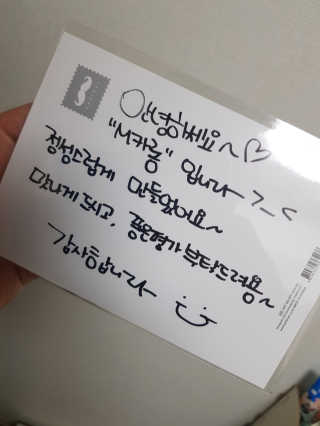 안녕하세요~♡
"서카롱" 입니다~ >_<
정성스럽게 만들었어요~
맛나게 드시고, 좋은평가 부탁드려용~
감사합니다~ :)